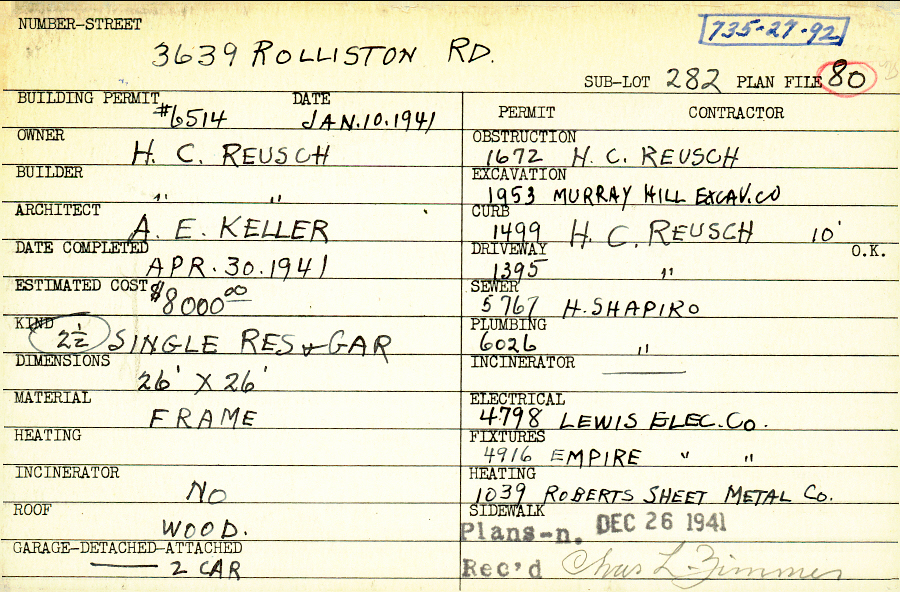 NUMBER-STREET
735-27-92
3639 ROLLISTON RD.
SUB-LOT 282 PLAN FILE 80
BUILDING PERMIT #6514 DATE JAN.10.1941
OWNER H. C. REUSCH
BUILDER " "
ARCHITECT A. E. KELLER
DATE COMPLETED APR. 30. 1941
ESTIMATED COST $8000 00
KIND 2½ SINGLE RES & GAR
DIMENSIONS 26' X 26'
MATERIAL FRAME
HEATING
INCINERATOR NO
ROOF WOOD.
GARAGE-DETACHED-ATTACHED
2 CAR
PERMIT CONTRACTOR
OBSTRUCTION
1672 H. C. REUSCH
EXCAVATION
1953 MURRAY HILL EXCAV. CO
CURB
1499 H. C. REUSCH 10'
DRIVEWAY O.K.
1395 "
SEWER
5767 H. SHAPIRO
PLUMBING
6026 "
INCINERATOR
ELECTRICAL
4798 LEWIS ELEC. Co.
FIXTURES
4916 EMPIRE " "
HEATING
1039 ROBERTS SHEET METAL Co.
SIDEWALK
Plans-n. DEC 26 1941
Rec'd Chas L. Zimmer